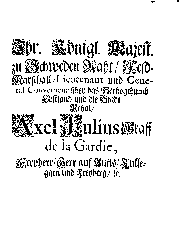 Ihr. Königl. Majest.
zu Schweden Raht / Feld-
Marschall / Lieutenant und Gene-
ral Gouverneur über das Hertzogthumb
Ehstland und die Stadt
Reval /
Axel Julius Graff
de la Gardie,
Freyherr / Herr auf
und Freyberg / ꝛc.